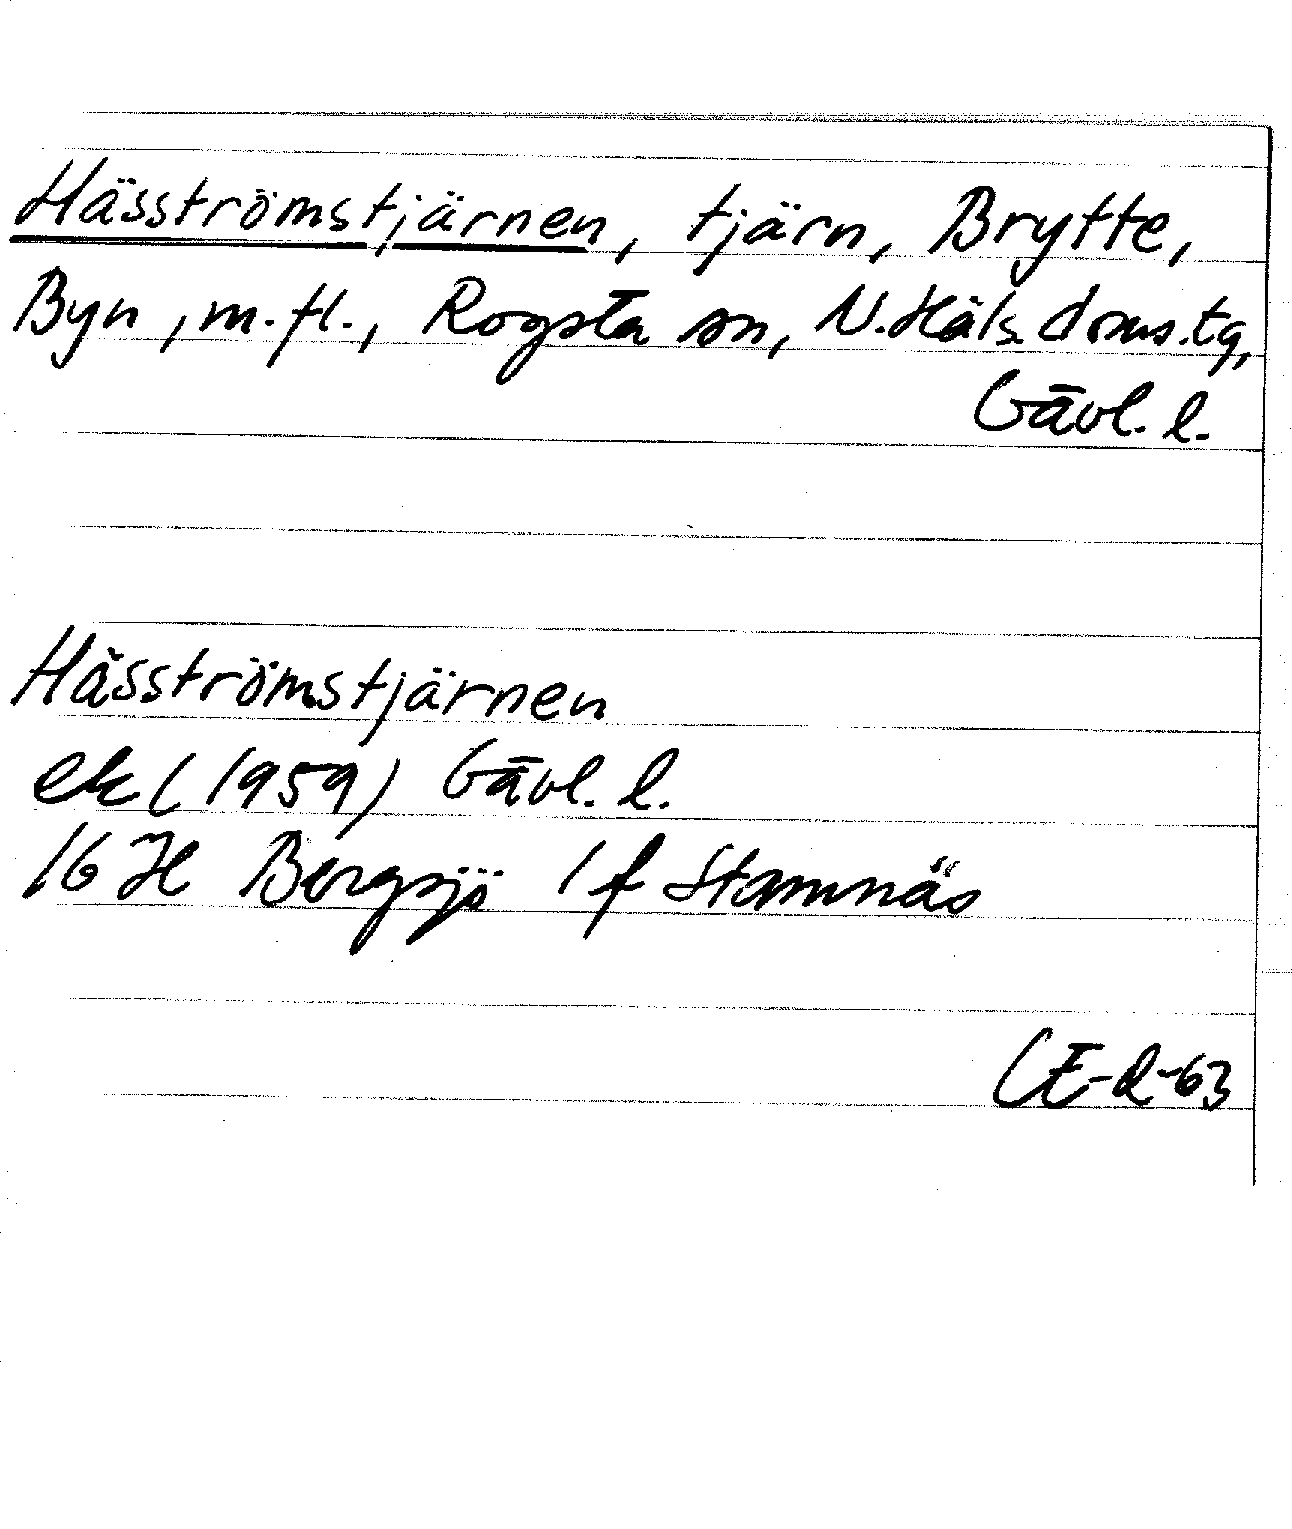 Häsströmstjärnen, tjärn, Brytte,
Byn, m.fl., Rogsta sn, N.Häls. doms.tg,
Gävl. l.
Häsströmstjärnen
ek (1959) Gävl. l.
16 H Bergsjö 1 f Stamnäs
CE-R-63